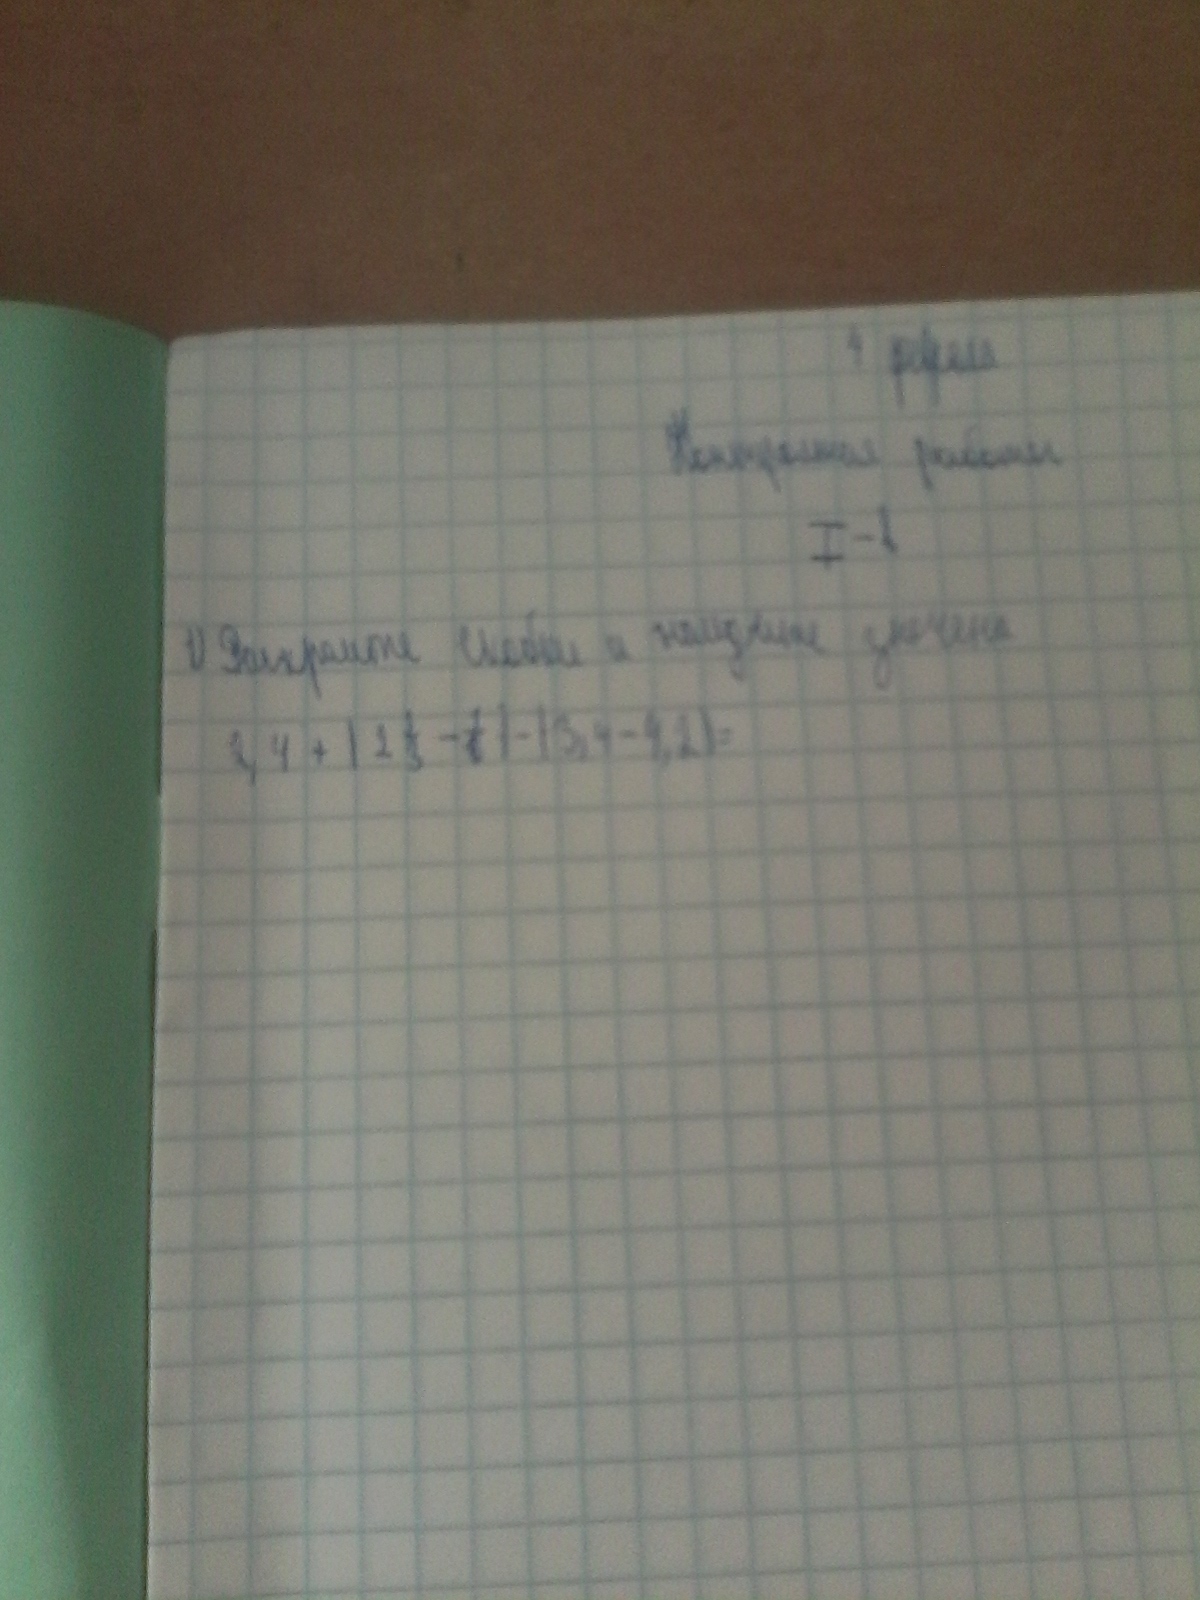 4 февраля
Контрольная работа
I-в
1) Раскройте скобки и найдите значение
2,4 + (2 1/3 - 1/6) - (3,4 - 4,2) =